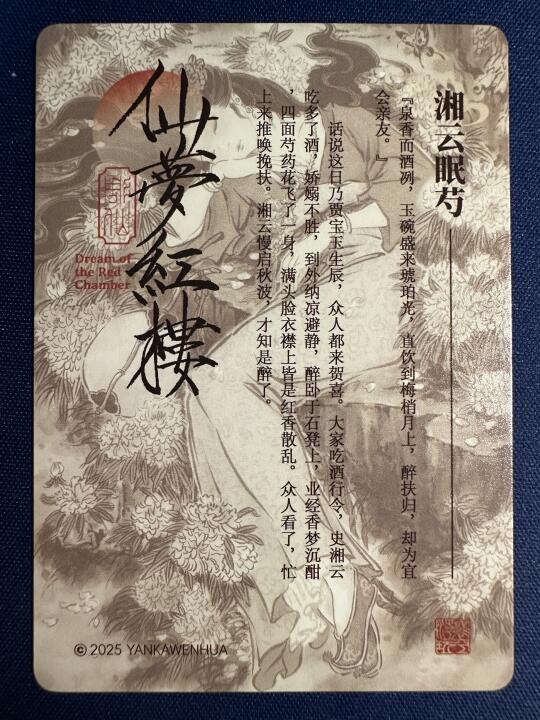 湘云眠芍
『泉香而酒冽，玉碗盛来琥珀光，直饮到梅梢月上，醉扶归，却为宜
会亲友。』
话说这日乃贾宝玉生辰，众人都来贺喜。大家吃酒行令，史湘云
吃多了酒，娇嫋不胜，到外纳凉避静，醉卧于石凳上，业经香梦沉酣
，四面芍药花飞了一身，满头脸衣襟上皆是红香散乱。众人看了，忙
上来推唤挽扶。湘云慢启秋波，才知是醉了。
仙夢紅樓
Dream of
the Red
Chamber
© 2025 YANKAWENHUA